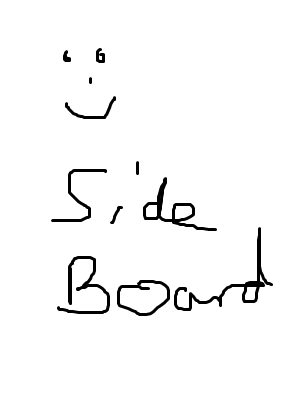 Side
Board